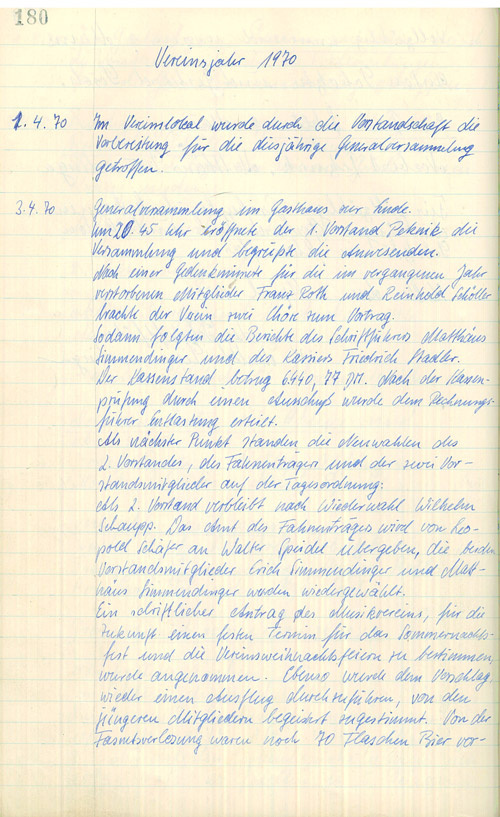 180
Vereinsjahr 1970
1. 4. 70 Im Vereinslokal wurde durch die Vorstandschaft die
Vorbereitung für die diesjährige Generalversammlung
getroffen.
3. 4. 70 Generalversammlung im Gasthaus zur Linde.
Um 20.45 Uhr eröffnete der 1. Vorstand Peknik die
Versammlung und begrüßte die Anwesenden.
Nach einer Gedenkminute für die im vergangenen Jahr
verstorbenen Mitglieder Franz Roth und Reinhold Schöller
brachte der Verein zwei Chöre zum Vortrag.
Sodann folgten die Berichte des Schriftführers Matthäus
Simmendinger und des Kassiers Friedrich Stadler.
Der Kassenstand betrug 6440,77 DM. Nach der Kassen-
prüfung durch einen Ausschuß wurde dem Rechnungs-
führer Entlastung erteilt.
Als nächster Punkt standen die Neuwahlen des
2. Vorstandes, des Fahnenträgers und der zwei Vor-
standsmitglieder auf der Tagesordnung:
Als 2. Vorstand verbleibt nach Wiederwahl Wilhelm
Schaupp. Das Amt des Fahnenträgers wird von Leo-
pold Schäfer an Walter Speidel übergeben, die beiden
Vorstandsmitglieder Erich Simmendinger und Matt-
häus Simmendinger werden wiedergewählt.
Ein schriftlicher Antrag des Musikvereins, für die
Zukunft einen festen Termin für das Sommernachts-
fest und die Vereinsweihnachtsfeiern zu bestimmen,
wurde angenommen. Ebenso wurde dem Vorschlag
wieder einen Ausflug durchzuführen, von den
jüngeren Mitgliedern begeistert zugestimmt. Von der
Fasnetsverlosung waren noch 70 Flaschen Bier vor-